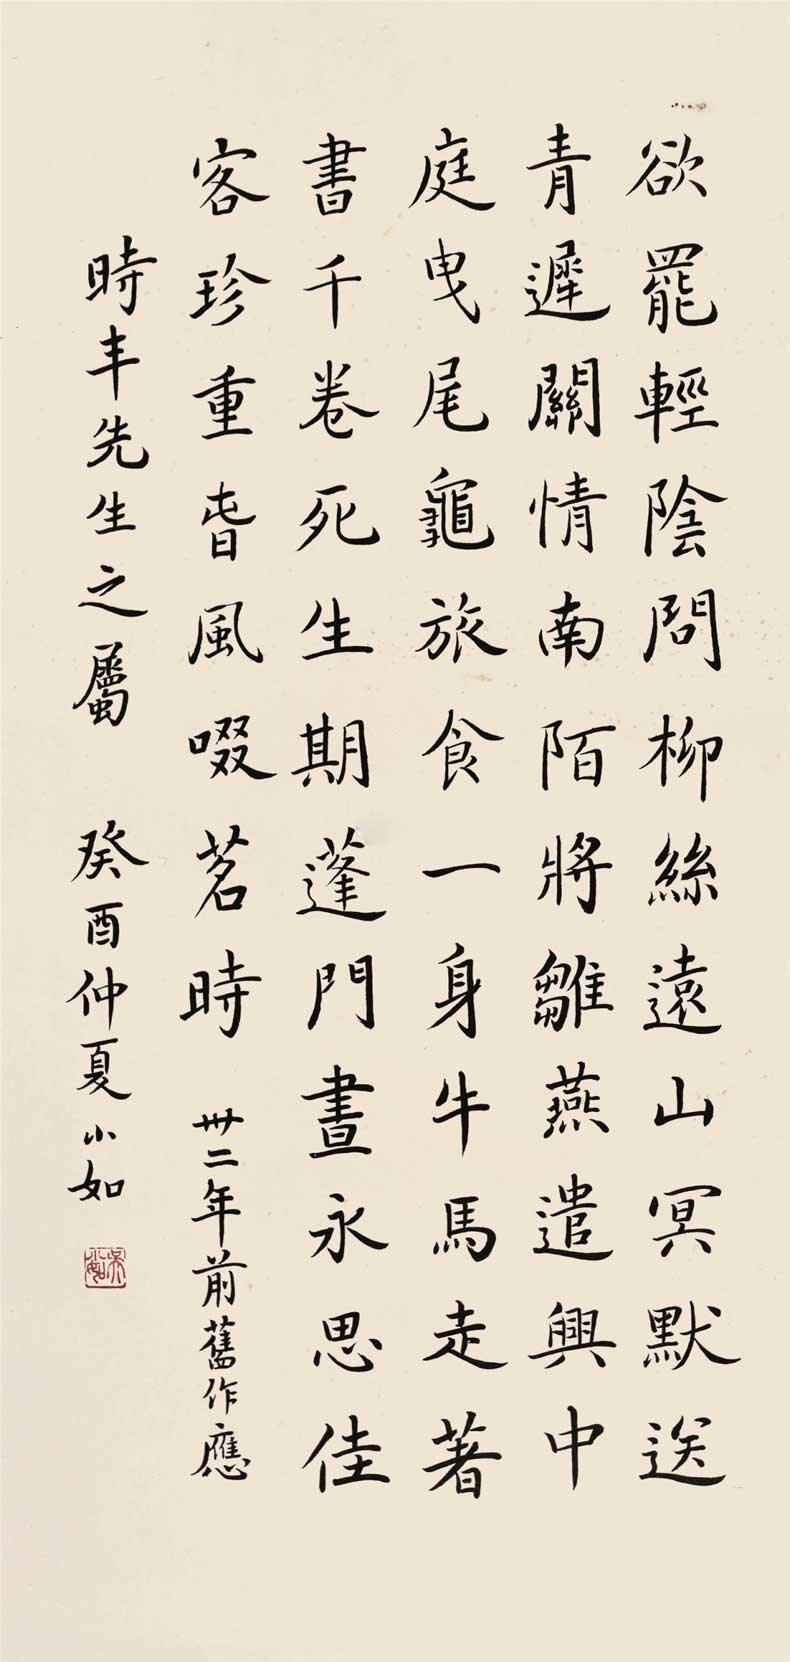 欲罷輕陰問柳絲遠山冥默送
青遲關情南陌將雛燕遣興中
庭曳尾龜旅食一身牛馬走著
書千卷死生期蓬門晝永思佳
客珍重旾風啜茗時 卅二年前舊作應
時丰先生之屬 癸酉仲夏小如
吳小如